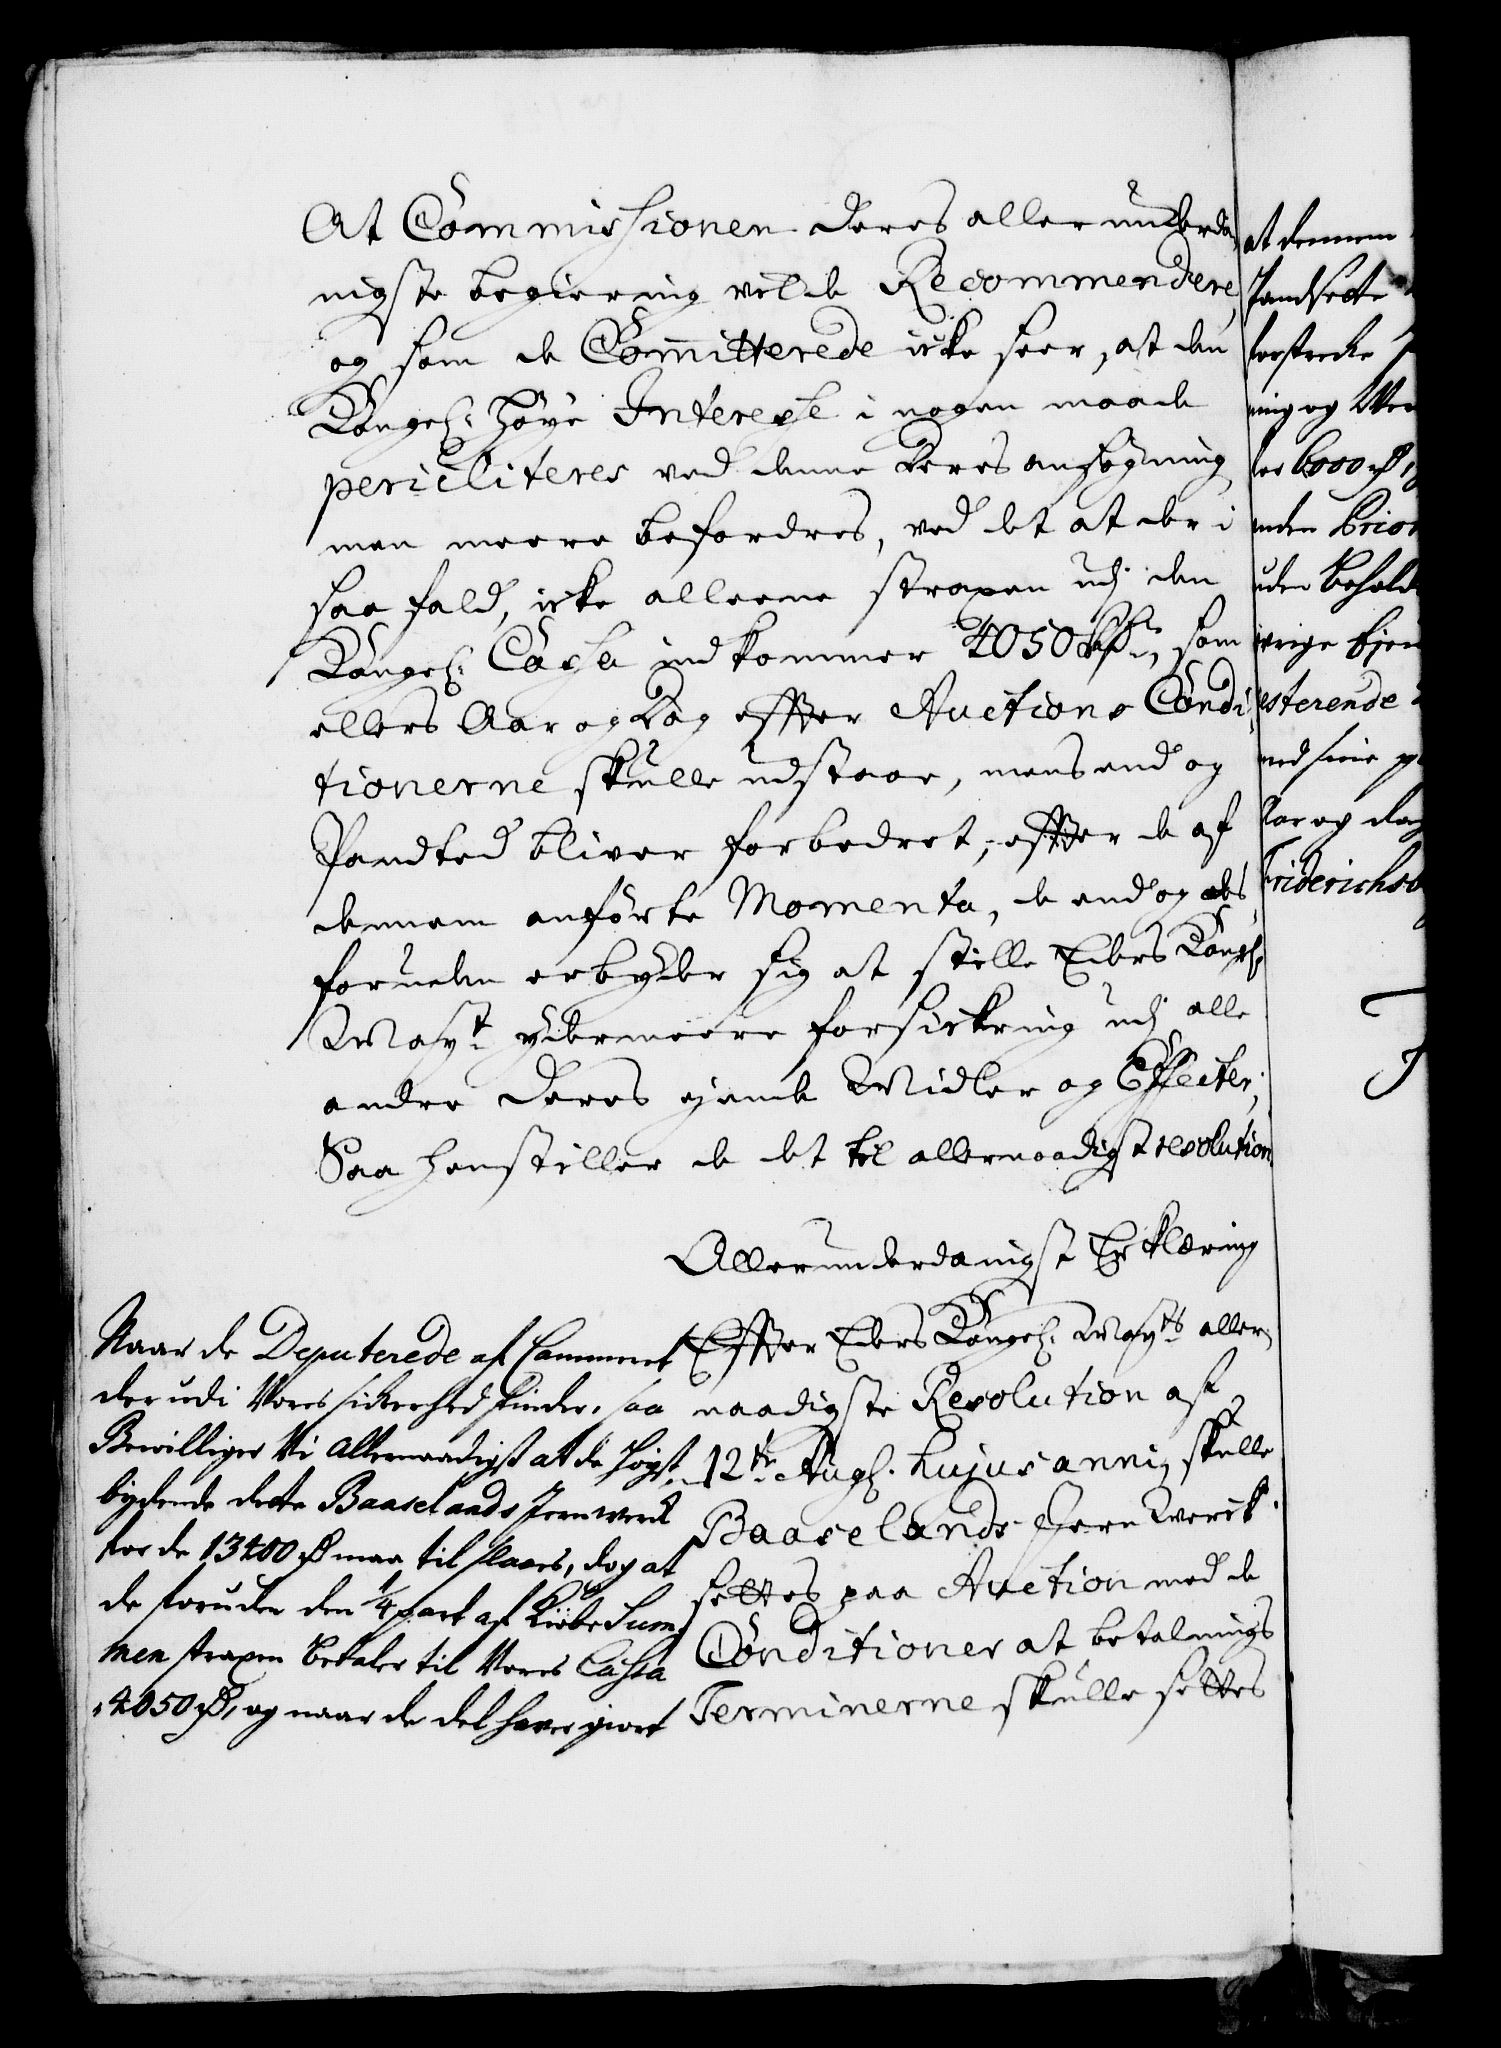 At Commissionen deres allerunderda
nigste begiering vilde Recommendere,
og som de Committerede icke seer, at den
Kongel: høye Interesse i nogen maade
pericliteres ved denne deres ansøgning
men meere befordres, ved det at der i
saa fald, icke alleene straxen udj den
Kongel: Cassa indkommer 4050 Rdr, som
ellers Aar og dag effter Auctions Condi
tionerne skulle udstaae, mens end og
Pandted bliver forbedret, effter de af
dennem anførte Momenta, de end og des
foruden erbyder sig at stille Eders Kongl:
Mayt ydermeere forsickring udj alle
andre deres ejende Midler og Effecter,
Saa henstiller de det til allernaadigst resolution
Allerunderdanigst Erklæring
Effter Eders Kongel: Mayts aller
naadigste Resolution af
12te Augs. hujus anni, skulle
Baaselands Jern Werck
settes paa Auction med de
Conditioner at betalnings
Terminerne skulle settes
Naar de Deputerede af Cammeret
der udi Vores sikerhed finder, saa
Bewilliger Vi Allernaadigst at de høyst
bydende dette Baaselands Jernwerck
for de 13400 Rdr maa til slaaes, dog at
de foruden den 1/4 part af Kiøbe Sum
men straxen betaler til Vores Cassa
4050 Rdr, og naar de det haver giort
at dennem
Pandsette
forstrecke
ning og
6000 Rdr,
anden Prior
uden behold
øvrige Ejen
esterende
med sine
Aar og dag
Friderichsb